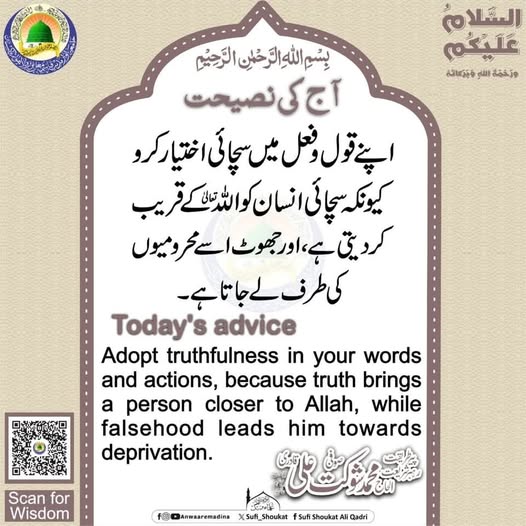 السَّلَامُ
عَلَيْكُم
وَرَحْمَةُ اللهِ وَبَرَكَاتُهُ
بِسْمِ اللهِ الرَّحْمٰنِ الرَّحِيْمِ
آج کی نصیحت
اپنے قول و فعل میں سچائی اختیار کرو
کیونکہ سچائی انسان کو اللہ تعالیٰ کے قریب
کر دیتی ہے، اور جھوٹ اسے محرومیوں
کی طرف لے جاتا ہے۔
Today's advice
Adopt truthfulness in your words
and actions, because truth brings
a person closer to Allah, while
falsehood leads him towards
deprivation.
صوفی محمد شوکت علی قادری
Scan for
Wisdom
Anwaaremadina
Sufi_Shoukat
Sufi Shoukat Ali Qadri